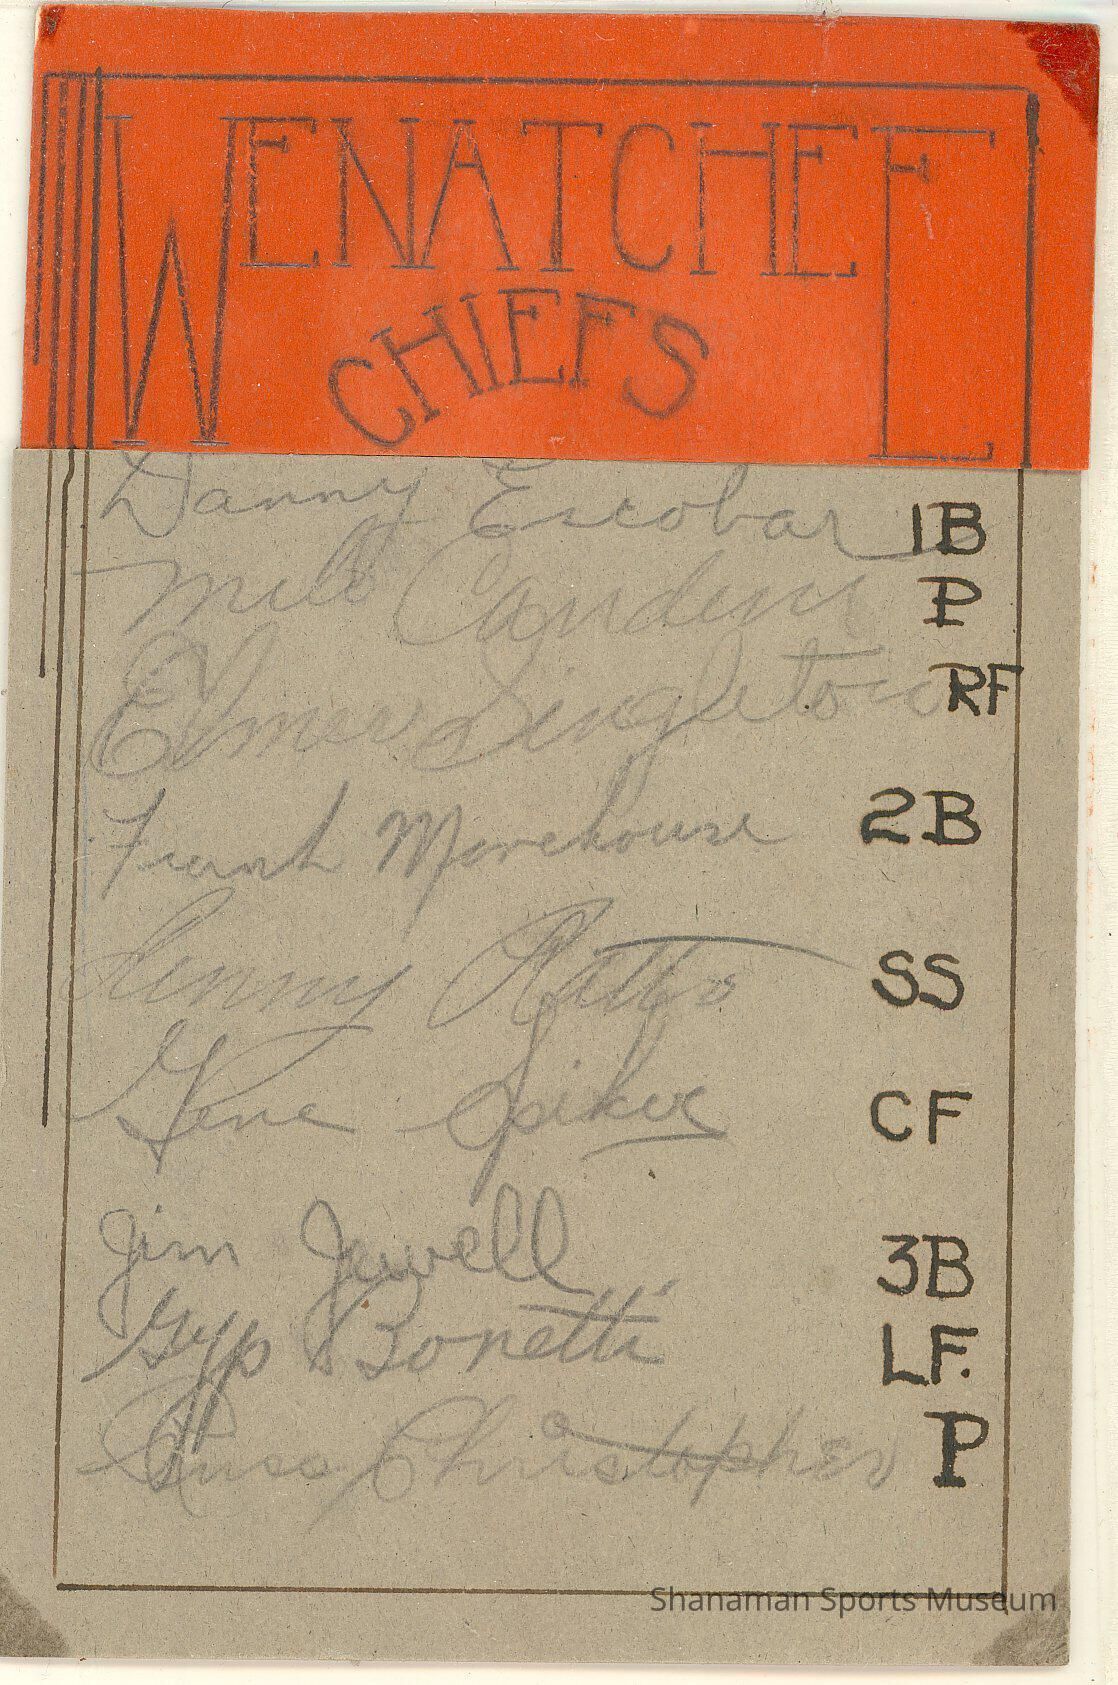 WENATCHEE
CHIEFS
Danny Escobar 1B
Milo Candini P
Elmer Singleton RF
Frank Morehouse 2B
Ratto SS
Gene Spiker CF
Jim Jewell 3B
Gyp Bonetti LF.
Russ Christopher P
Shanaman Sports Museum